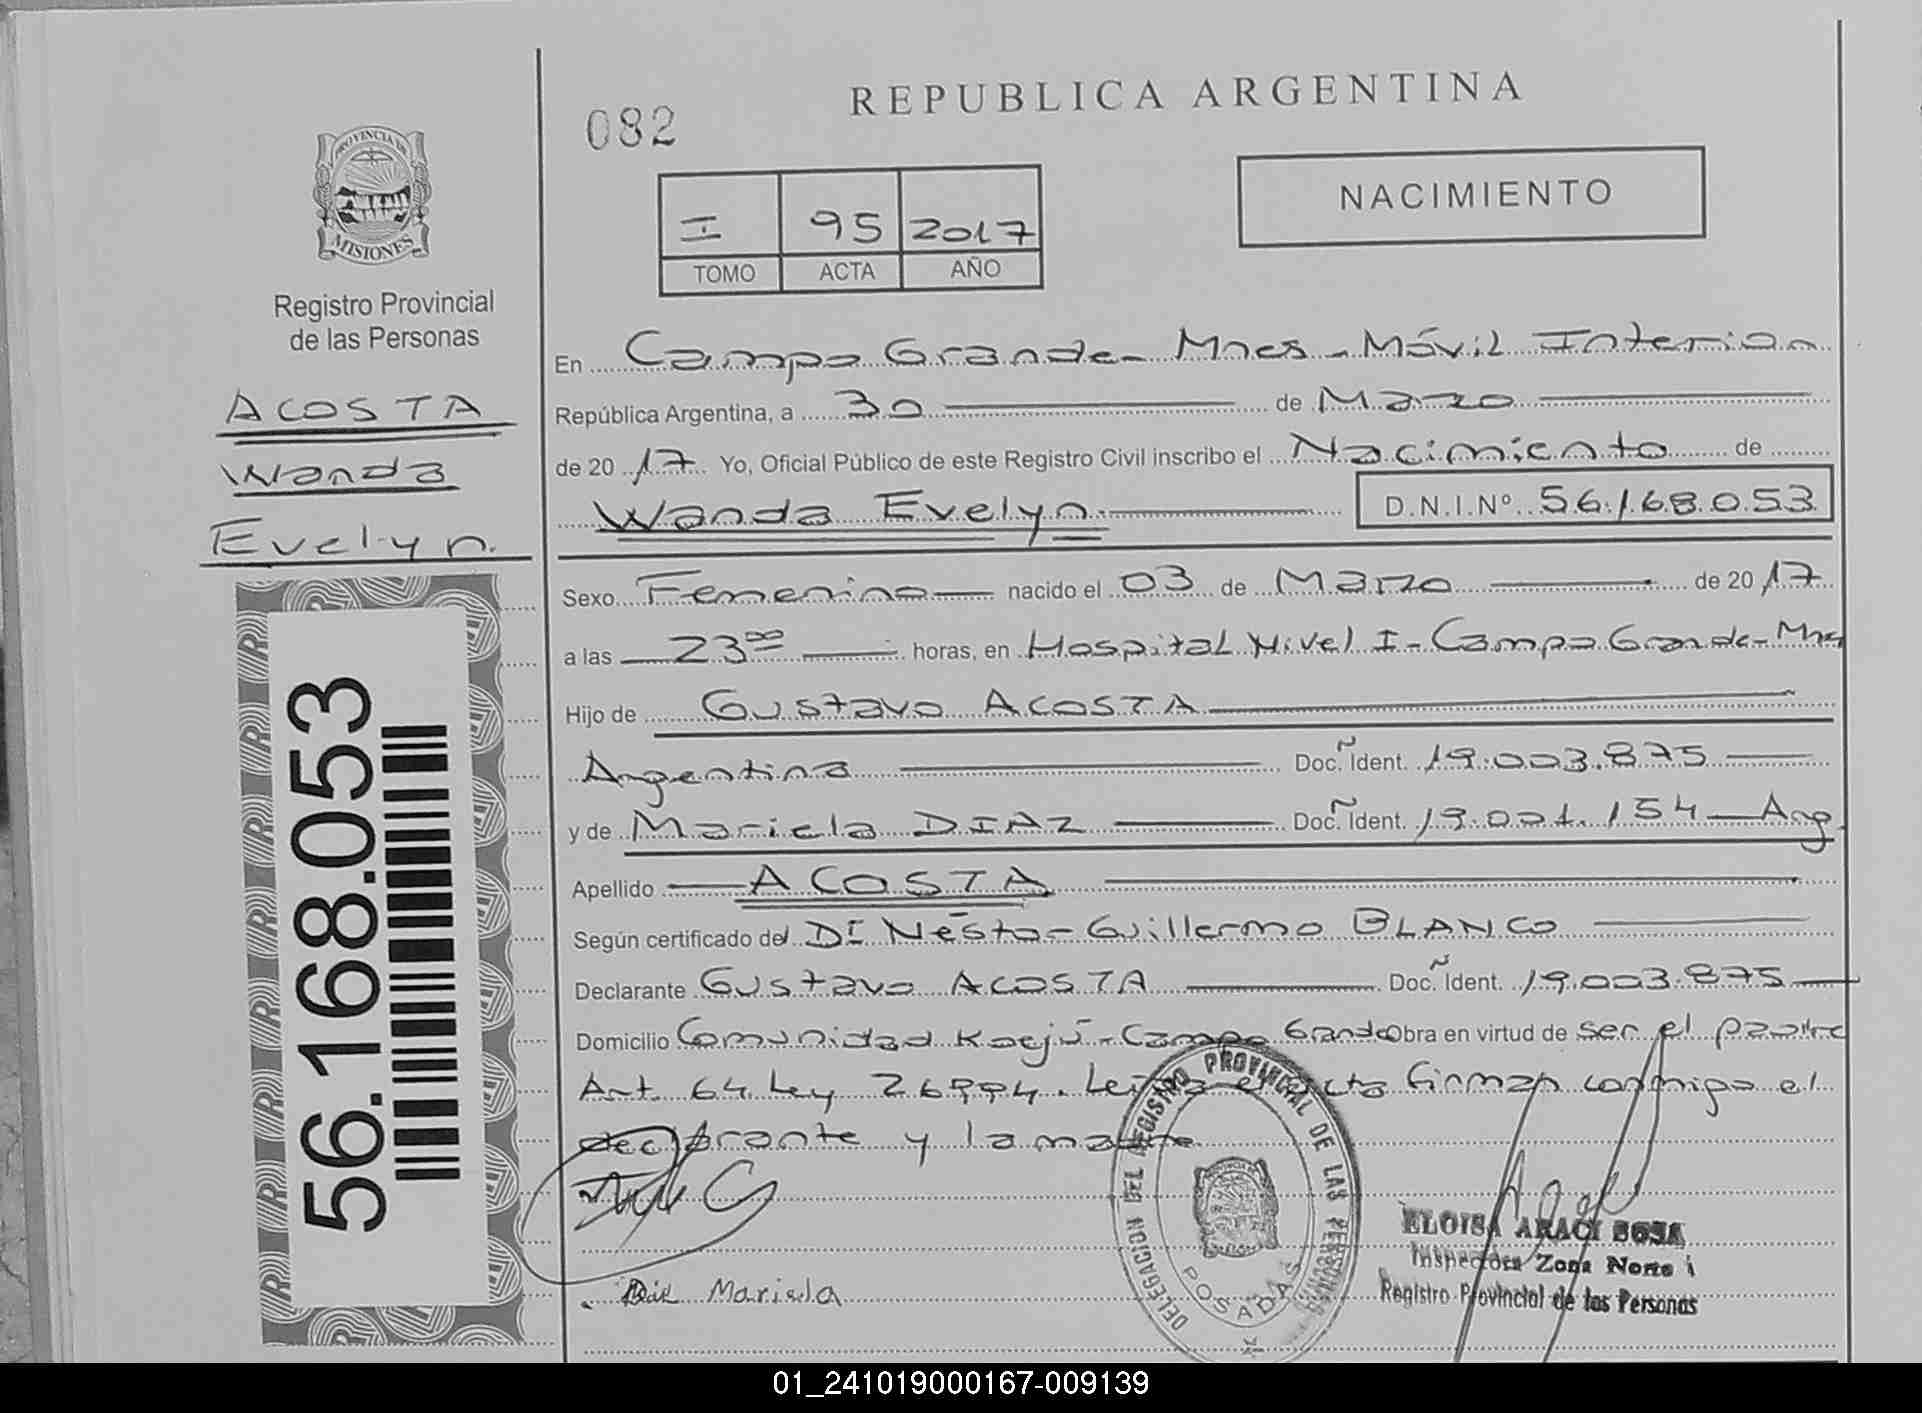 REPUBLICA ARGENTINA
082
NACIMIENTO
I 95 2017
TOMO ACTA AÑO
PROVINCIA DE
MISIONES
Registro Provincial
de las Personas
ACOSTA
Wanda
Evelyn.
56.168.053
En Campo Grande - Mnes - Móvil Interior
República Argentina, a 30 de Marzo
de 20 17 Yo, Oficial Público de este Registro Civil inscribo el Nacimiento de
Wanda Evelyn. D.N.I.Nº 56.168.053
Sexo Femenino nacido el 03 de Marzo de 20 17
a las 23 00 horas, en Hospital Nivel I - Campo Grande - Mnes
Hijo de Gustavo ACOSTA
Argentina Doc. Ident. 19.003.875
y de Mariela DIAZ Doc. Ident. 19.001.154 - Arg.
Apellido ACOSTA
Según certificado del DI Néstor Guillermo BLANCO
Declarante Gustavo ACOSTA Doc. Ident. 19.003.875
Domicilio Comunidad Kaejú - Campo Grande Obra en virtud de ser el padre
Art. 64 Ley 26994. Leída el acta firman conmigo el
declarante y la madre
DELEGACION DEL REGISTRO PROVINCIAL DE LAS PERSONAS
POSADAS
Mariela
ELOISA ARACI SOSA
Inspectora Zona Norte I
Registro Provincial de las Personas
01_241019000167-009139